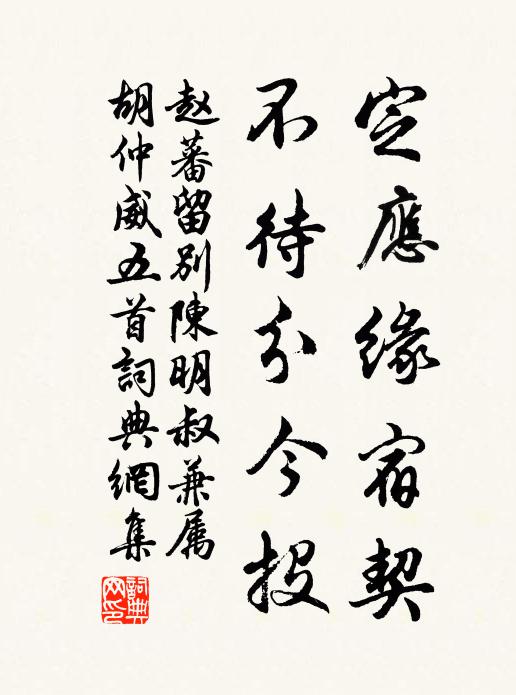 定應緣宿契
不待分今投
赵蕃留别陳明叔兼属
胡仲威五首詞典網集
詞典网印